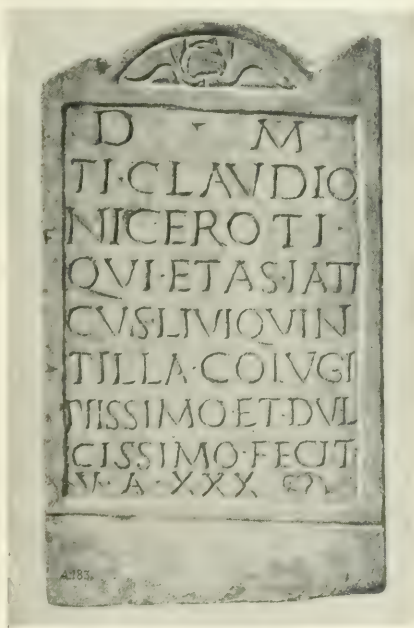 D · M
TI·CLAVDIO
NICEROTI·
QVI·ETAS·IATI
CVS·LIVIQVIN
TILLA·COIVGI
PIISSIMO·ET·DVL
CISSIMO·FECIT·
V·A·XXX
A.183.